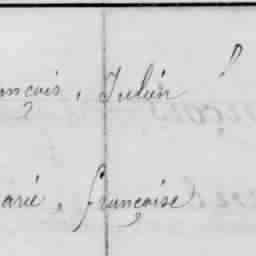 ançois, Julien
arie, française